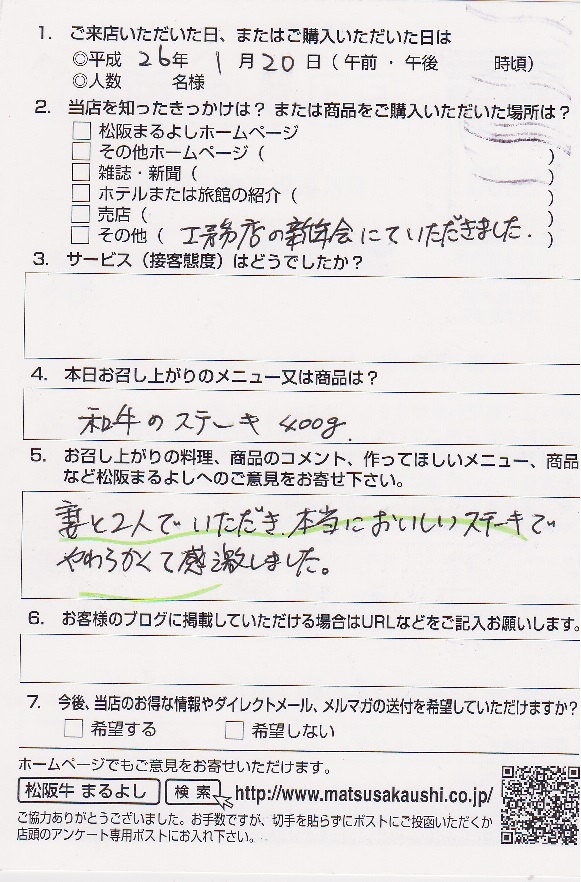 1. ご来店いただいた日、またはご購入いただいた日は
◎平成 26年 1月20日(午前・午後 時頃)
◎人数 名様
2. 当店を知ったきっかけは? または商品をご購入いただいた場所は?
□ 松阪まるよしホームページ
□ その他ホームページ( )
□ 雑誌・新聞( )
□ ホテルまたは旅館の紹介( )
□ 売店( )
□ その他( 工務店の新年会にていただきました. )
3. サービス(接客態度)はどうでしたか?
4. 本日お召し上がりのメニュー又は商品は?
和牛のステーキ 400g.
5. お召し上がりの料理、商品のコメント、作ってほしいメニュー、商品
など松阪まるよしへのご意見をお寄せ下さい。
妻と2人でいただき、本当においしいステーキで
やわらかくて感激しました。
6. お客様のブログに掲載していただける場合はURLなどをご記入お願いします。
7. 今後、当店のお得な情報やダイレクトメール、メルマガの送付を希望していただけますか?
□ 希望する □ 希望しない
ホームページでもご意見をお寄せいただけます。
松阪牛 まるよし 検索 http://www.matsusakaushi.co.jp/
ご協力ありがとうございました。お手数ですが、切手を貼らずにポストにご投函いただくか
店頭のアンケート専用ポストにお入れ下さい。